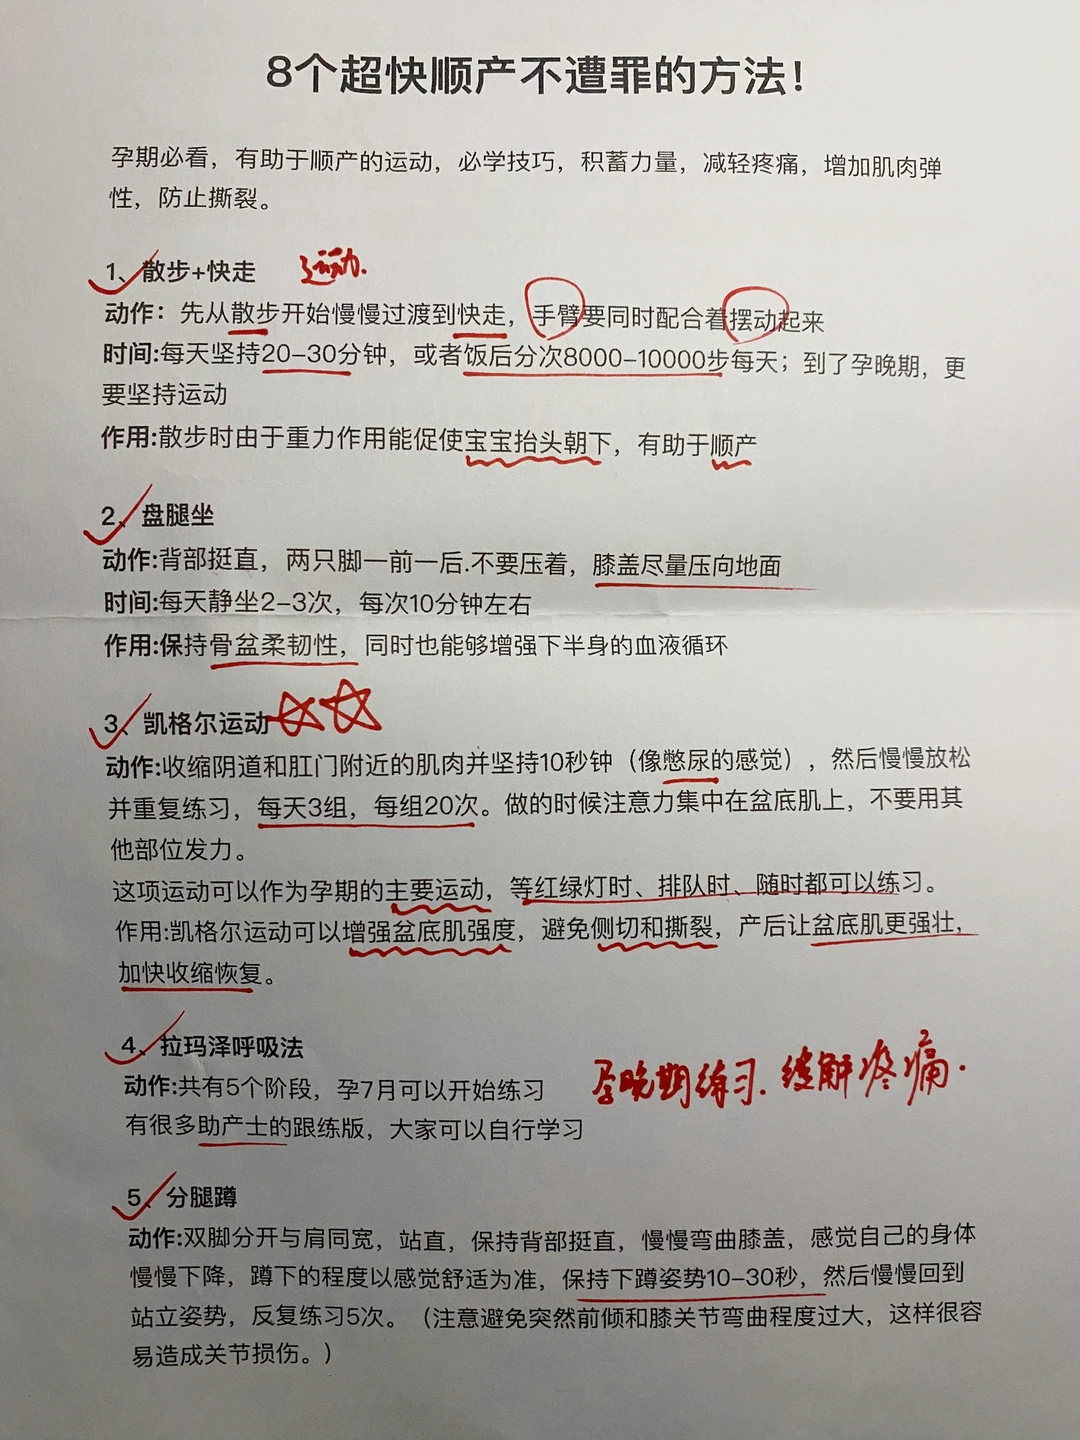 8个超快顺产不遭罪的方法！
孕期必看，有助于顺产的运动，必学技巧，积蓄力量，减轻疼痛，增加肌肉弹
性，防止撕裂。
1、散步+快走 运动.
动作：先从散步开始慢慢过渡到快走，手臂要同时配合着摆动起来
时间:每天坚持20-30分钟，或者饭后分次8000-10000步每天；到了孕晚期，更
要坚持运动
作用:散步时由于重力作用能促使宝宝抬头朝下，有助于顺产
2、盘腿坐
动作:背部挺直，两只脚一前一后.不要压着，膝盖尽量压向地面
时间:每天静坐2-3次，每次10分钟左右
作用:保持骨盆柔韧性，同时也能够增强下半身的血液循环
3、凯格尔运动
动作:收缩阴道和肛门附近的肌肉并坚持10秒钟（像憋尿的感觉），然后慢慢放松
并重复练习，每天3组，每组20次。做的时候注意力集中在盆底肌上，不要用其
他部位发力。
这项运动可以作为孕期的主要运动，等红绿灯时、排队时、随时都可以练习。
作用:凯格尔运动可以增强盆底肌强度，避免侧切和撕裂，产后让盆底肌更强壮，
加快收缩恢复。
4、拉玛泽呼吸法
动作:共有5个阶段，孕7月可以开始练习
孕晚期练习.缓解疼痛.
有很多助产士的跟练版，大家可以自行学习
5、分腿蹲
动作:双脚分开与肩同宽，站直，保持背部挺直，慢慢弯曲膝盖，感觉自己的身体
慢慢下降，蹲下的程度以感觉舒适为准，保持下蹲姿势10-30秒，然后慢慢回到
站立姿势，反复练习5次。（注意避免突然前倾和膝关节弯曲程度过大，这样很容
易造成关节损伤。）